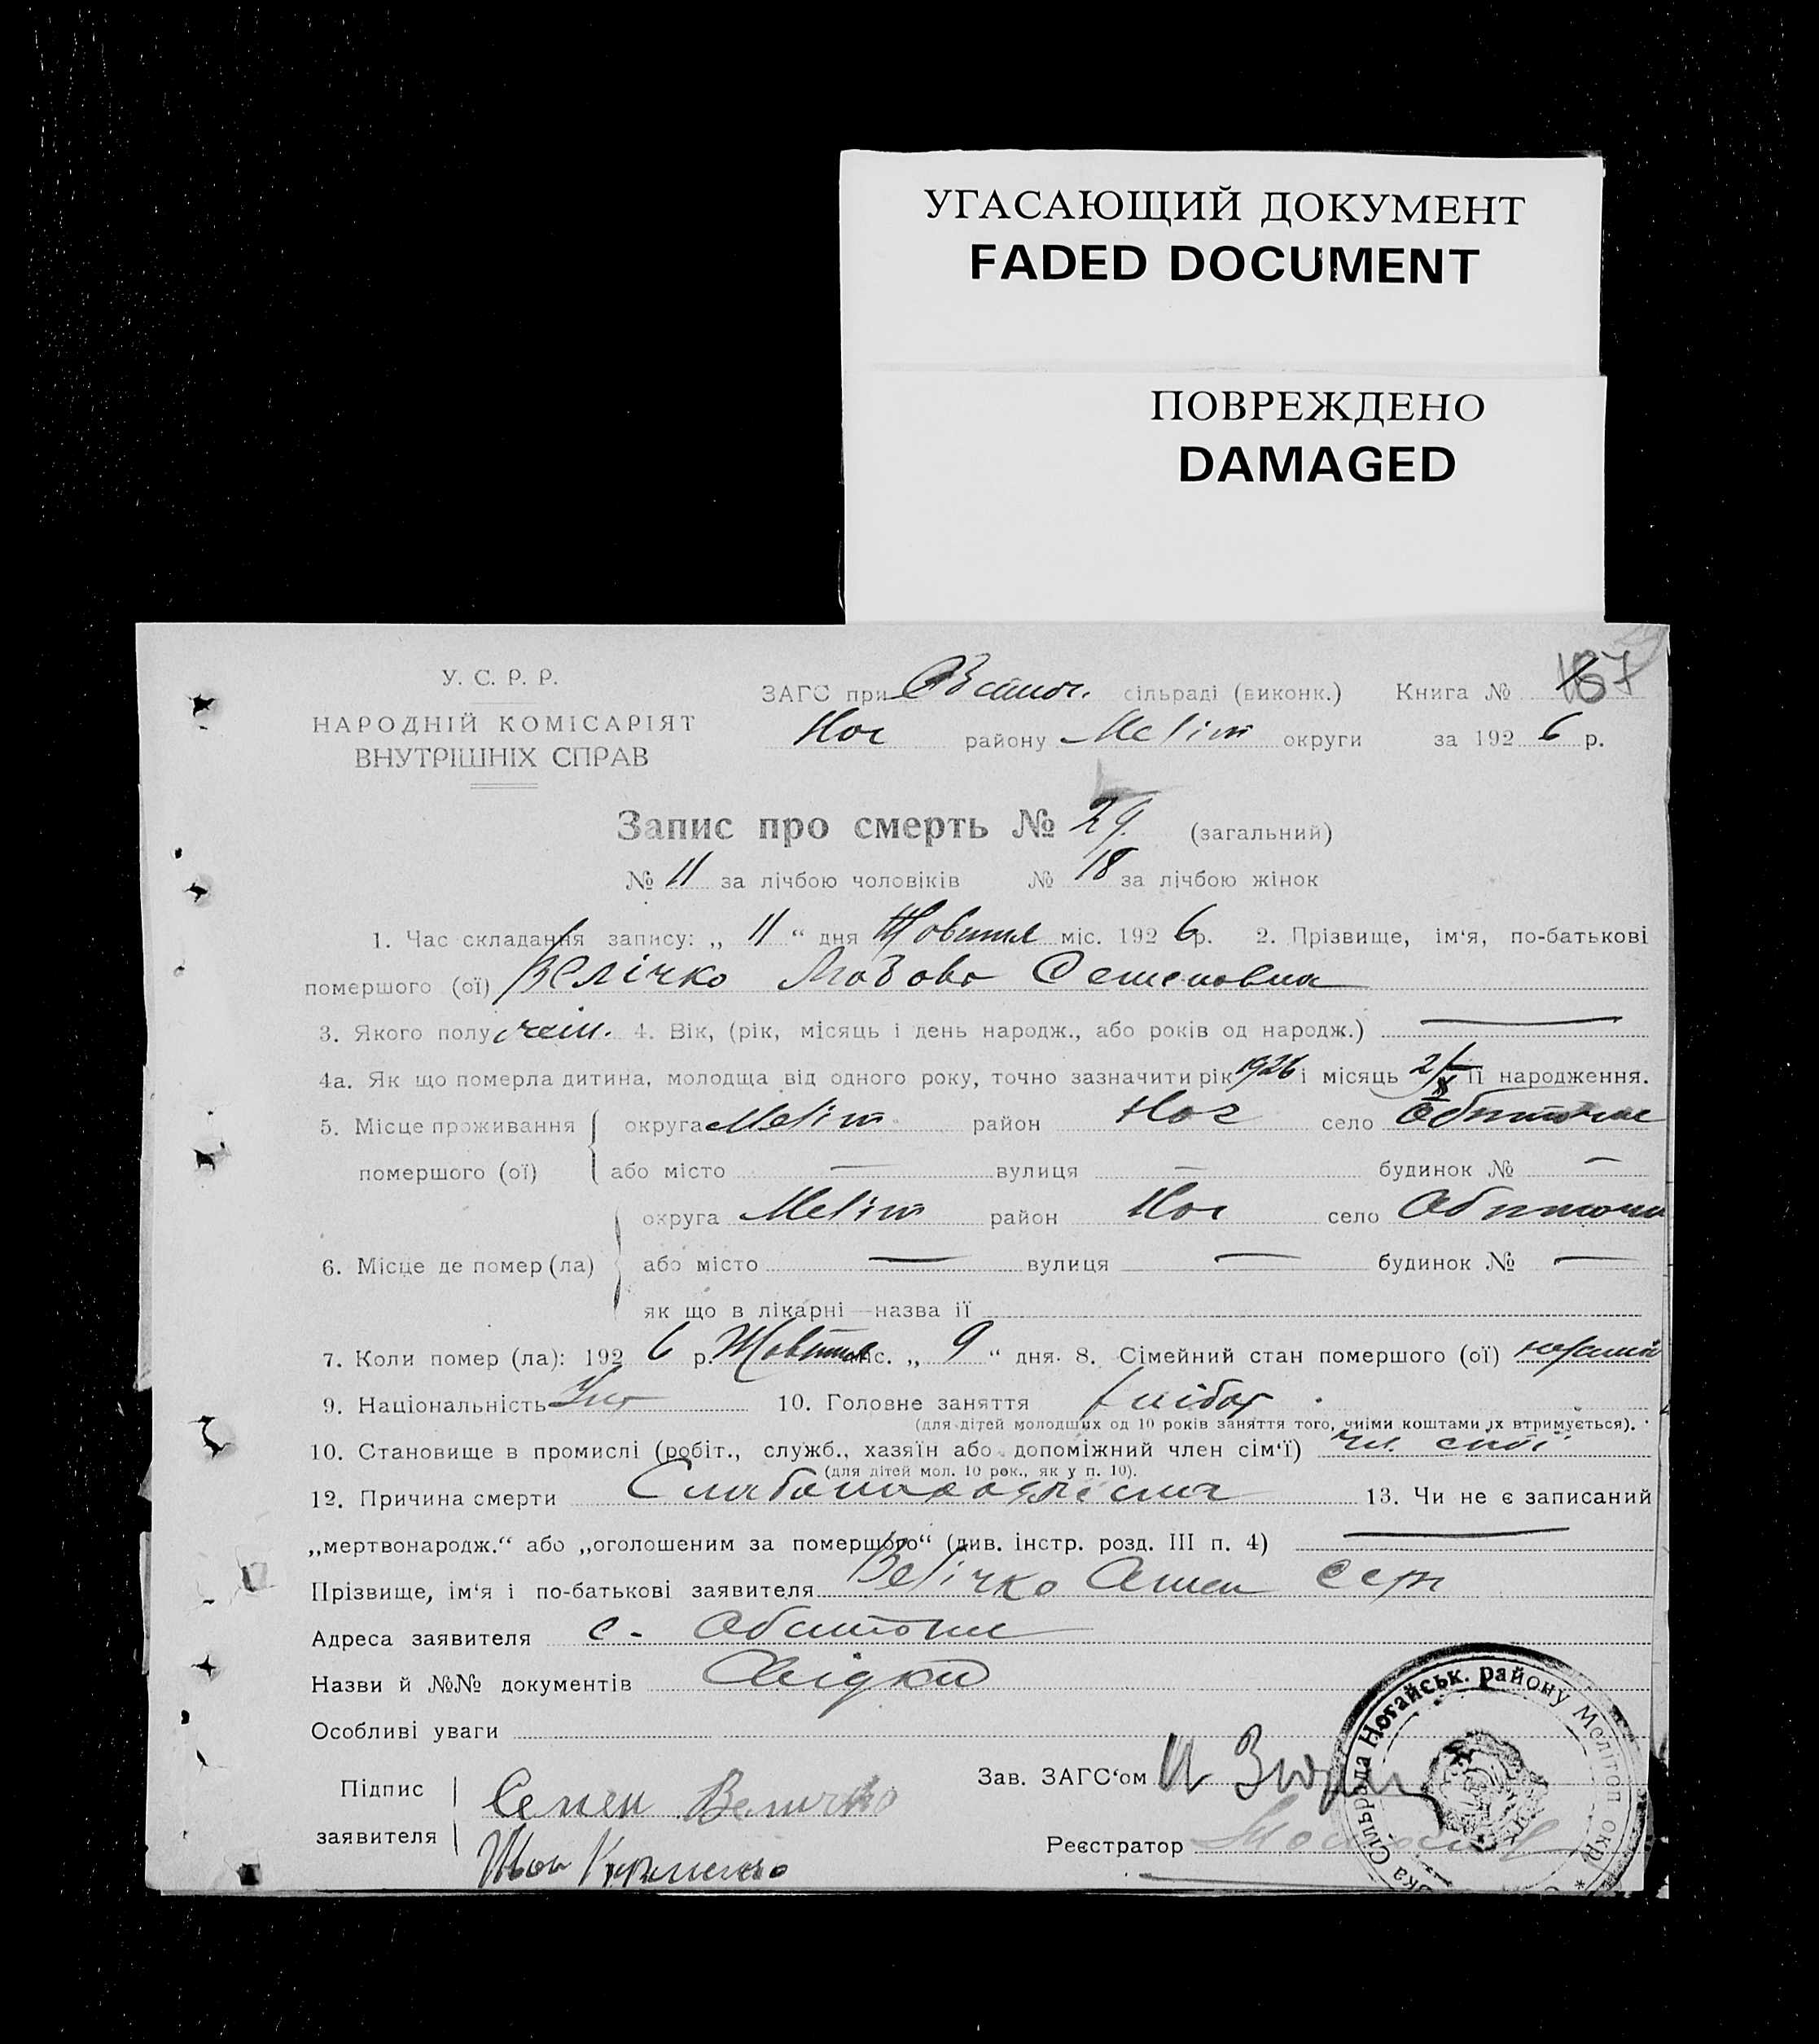 УГАСАЮЩИЙ ДОКУМЕНТ
FADED DOCUMENT
ПОВРЕЖДЕНО
DAMAGED
У. С. Р. Р.
НАРОДНІЙ КОМІСАРІЯТ
ВНУТРІШНІХ СПРАВ
ЗАГС при сільраді (виконк.) Книга №
Ног району Меліт округи за 1926 р.
Запис про смерть № 29. (загальний)
№ 11 за лічбою чоловіків № 18 за лічбою жінок
1. Час складання запису: „ 11 “ дня Жовтня міс. 1926 р. 2. Прізвище, ім‘я, по-батькові
помершого (ої) Велічко Любовь Семеновна
3. Якого полу жін. 4. Вік, (рік, місяць і день народж., або років од народж.) —
4а. Як що померла дитина, молодща від одного року, точно зазначити рік 1926 і місяць 2/X її народження.
5. Місце проживання помершого (ої) округа Меліт район Ног село Обиточне
або місто — вулиця — будинок № —
6. Місце де помер (ла) округа Меліт район Ног село Обиточн
або місто — вулиця — будинок № —
як що в лікарні—назва ії
7. Коли помер (ла): 1926 р. Жовтня міс. „ 9 “ дня. 8. Сімейний стан помершого (ої)
9. Національність Укр 10. Головне заняття хлібор
(для дітей молодших од 10 років заняття того, чиїми коштами їх втримується).
10. Становище в промислі (робіт., служб., хазяїн або допоміжний член сім‘ї) чл. сімї
(для дітей мол. 10 рок., як у п. 10).
12. Причина смерти 13. Чи не є записаний
„мертвонародж.“ або „оголошеним за помершого“ (див. інстр. розд. III п. 4) —
Прізвище, ім‘я і по-батькові заявителя Велічко Семен Сер
Адреса заявителя с. Обиточне
Назви й №№ документів
Особливі уваги
Підпис заявителя Семен Величко
Иван
Зав. ЗАГС‘ом
Реєстратор
Сільрада Ногайськ. району Меліто п окр. *